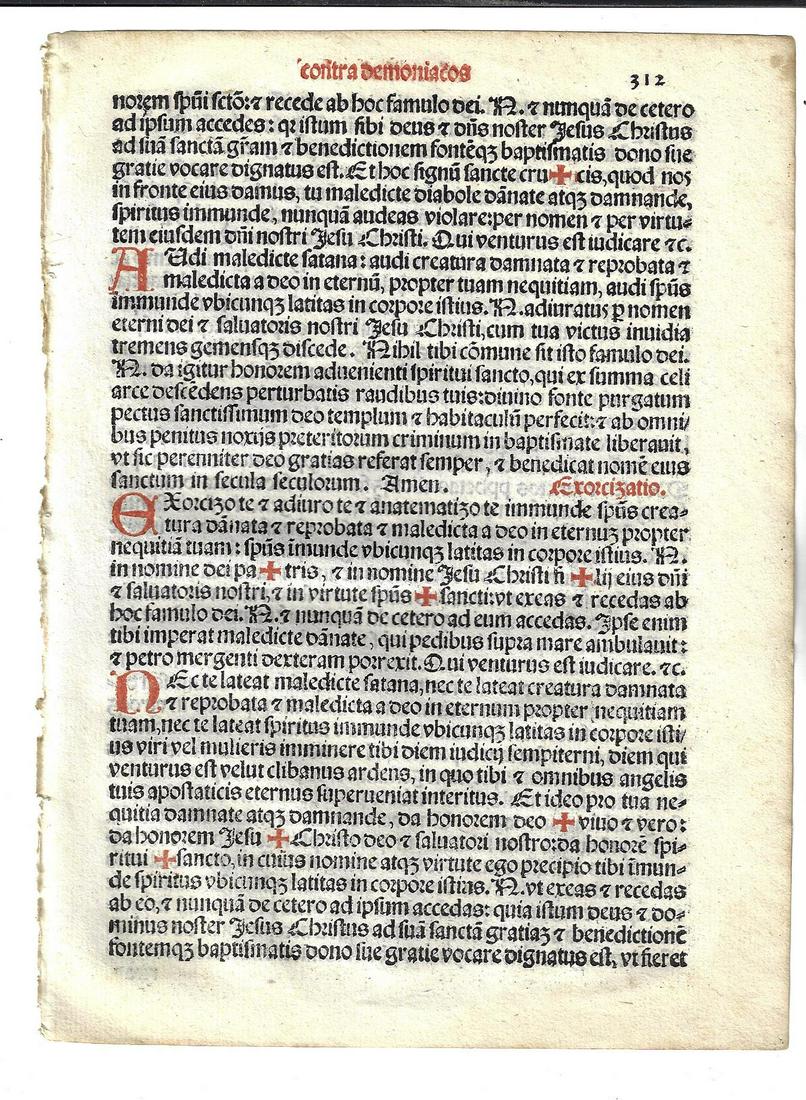 cōtra demoniacos
312
norem spūi sctō: ⁊ recede ab hoc famulo dei. N. ⁊ nunquā de cetero
ad ipsum accedes: qꝛ istum sibi deus ⁊ dn̄s noster Jesus Christus
ad suā sanctā gr̄am ⁊ benedictionem fontēqꝫ baptismatis dono sue
gratie vocare dignatus est. Et hoc signū sancte cru✠cis, quod nos
in fronte eius damus, tu maledicte diabole dānate atqꝫ damnande,
spiritus immunde, nunquā audeas violare: per nomen ⁊ per virtu-
tem eiusdem dn̄i nostri Jesu Christi. Qui venturus est iudicare ⁊ c.
AUdi maledicte satana: audi creatura damnata ⁊ reprobata ⁊
maledicta a deo in eternū, propter tuam nequitiam, audi spūs
immunde vbicunqꝫ latitas in corpore istius. N. adiuratus ꝑ nomen
eterni dei ⁊ saluatoris nostri Jesu Christi, cum tua victus inuidia
tremens gemensqꝫ discede. Nihil tibi cōmune sit isto famulo dei.
N. da igitur honorem aduenienti spiritui sancto, qui ex summa celi
arce descēdens perturbatis fraudibus tuis: diuino fonte purgatum
pectus sanctissimum deo templum ⁊ habitaculū perfecit: ⁊ ab omni/
bus penitus noxijs preteritorum criminum in baptismate liberauit,
vt sic perenniter deo gratias referat semper, ⁊ benedicat nomē eius
sanctum in secula seculorum. Amen. Exorcizatio.
EXorcizo te ⁊ adiuro te ⁊ anatematizo te immunde spūs crea-
tura dānata ⁊ reprobata ⁊ maledicta a deo in eternuꝫ propter
nequitiā tuam: spūs īmunde vbicunqꝫ latitas in corpore istius. N.
in nomine dei pa✠tris, ⁊ in nomine Jesu Christi fi✠lij eius dn̄i
⁊ saluatoris nostri, ⁊ in virtute spūs ✠ sancti: vt exeas ⁊ recedas ab
hoc famulo dei. N. ⁊ nunquā de cetero ad eum accedas. Ipse enim
tibi imperat maledicte dānate, qui pedibus supra mare ambulauit:
⁊ petro mergenti dexteram porrexit. Qui venturus est iudicare. ⁊c.
NEc te lateat maledicte satana, nec te lateat creatura damnata
⁊ reprobata ⁊ maledicta a deo in eternum propter nequitiam
tuam, nec te lateat spiritus immunde vbicunqꝫ latitas in corpore isti/
us viri vel mulieris imminere tibi diem iudicij sempiterni, diem qui
venturus est velut clibanus ardens, in quo tibi ⁊ omnibus angelis
tuis apostaticis eternus superueniat interitus. Et ideo pro tua ne-
quitia damnate atqꝫ damnande, da honorem deo ✠ viuo ⁊ vero:
da honorem Jesu ✠ Christo deo ⁊ saluatori nostro: da honorē spi-
ritui ✠ sancto, in cuius nomine atqꝫ virtute ego precipio tibi īmun-
de spiritus vbicunqꝫ latitas in corpore istius. N. vt exeas ⁊ recedas
ab eo, ⁊ nunquā de cetero ad ipsum accedas: quia istum deus ⁊ do-
minus noster Jesus Christus ad suā sanctā gratiaꝫ ⁊ benedictionē
fontemqꝫ baptismatis dono sue gratie vocare dignatus est, vt fieret